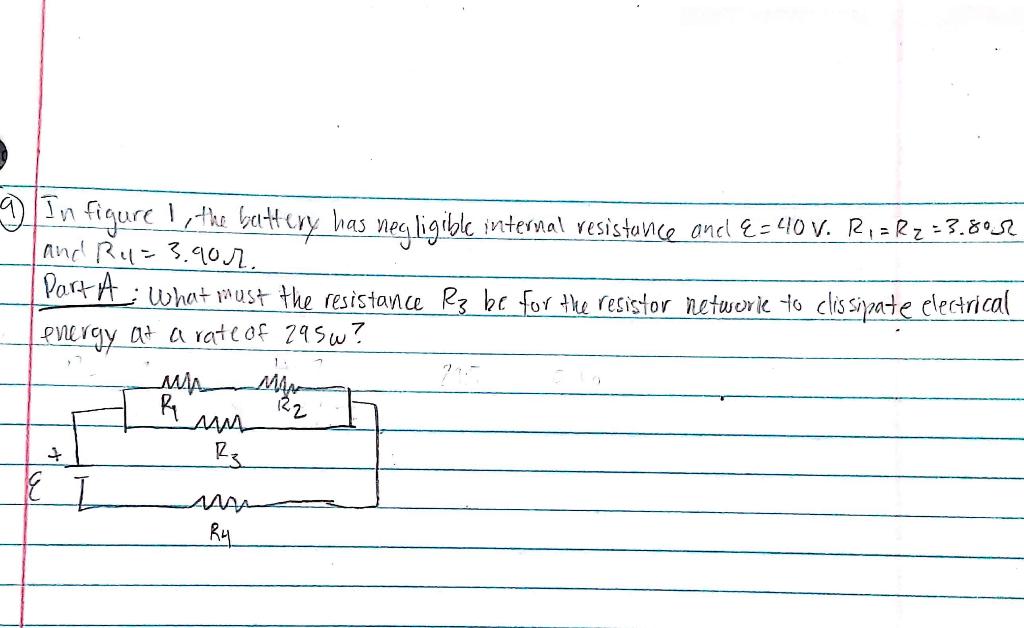 9) In figure 1, the battery has negligible internal resistance and ε = 40 V. R1 = R2 = 3.80Ω
and R4 = 3.90Ω.
Part A : What must the resistance R3 be for the resistor network to dissipate electrical
energy at a rate of 295w?
R1 R2
R3
+
ε
R4